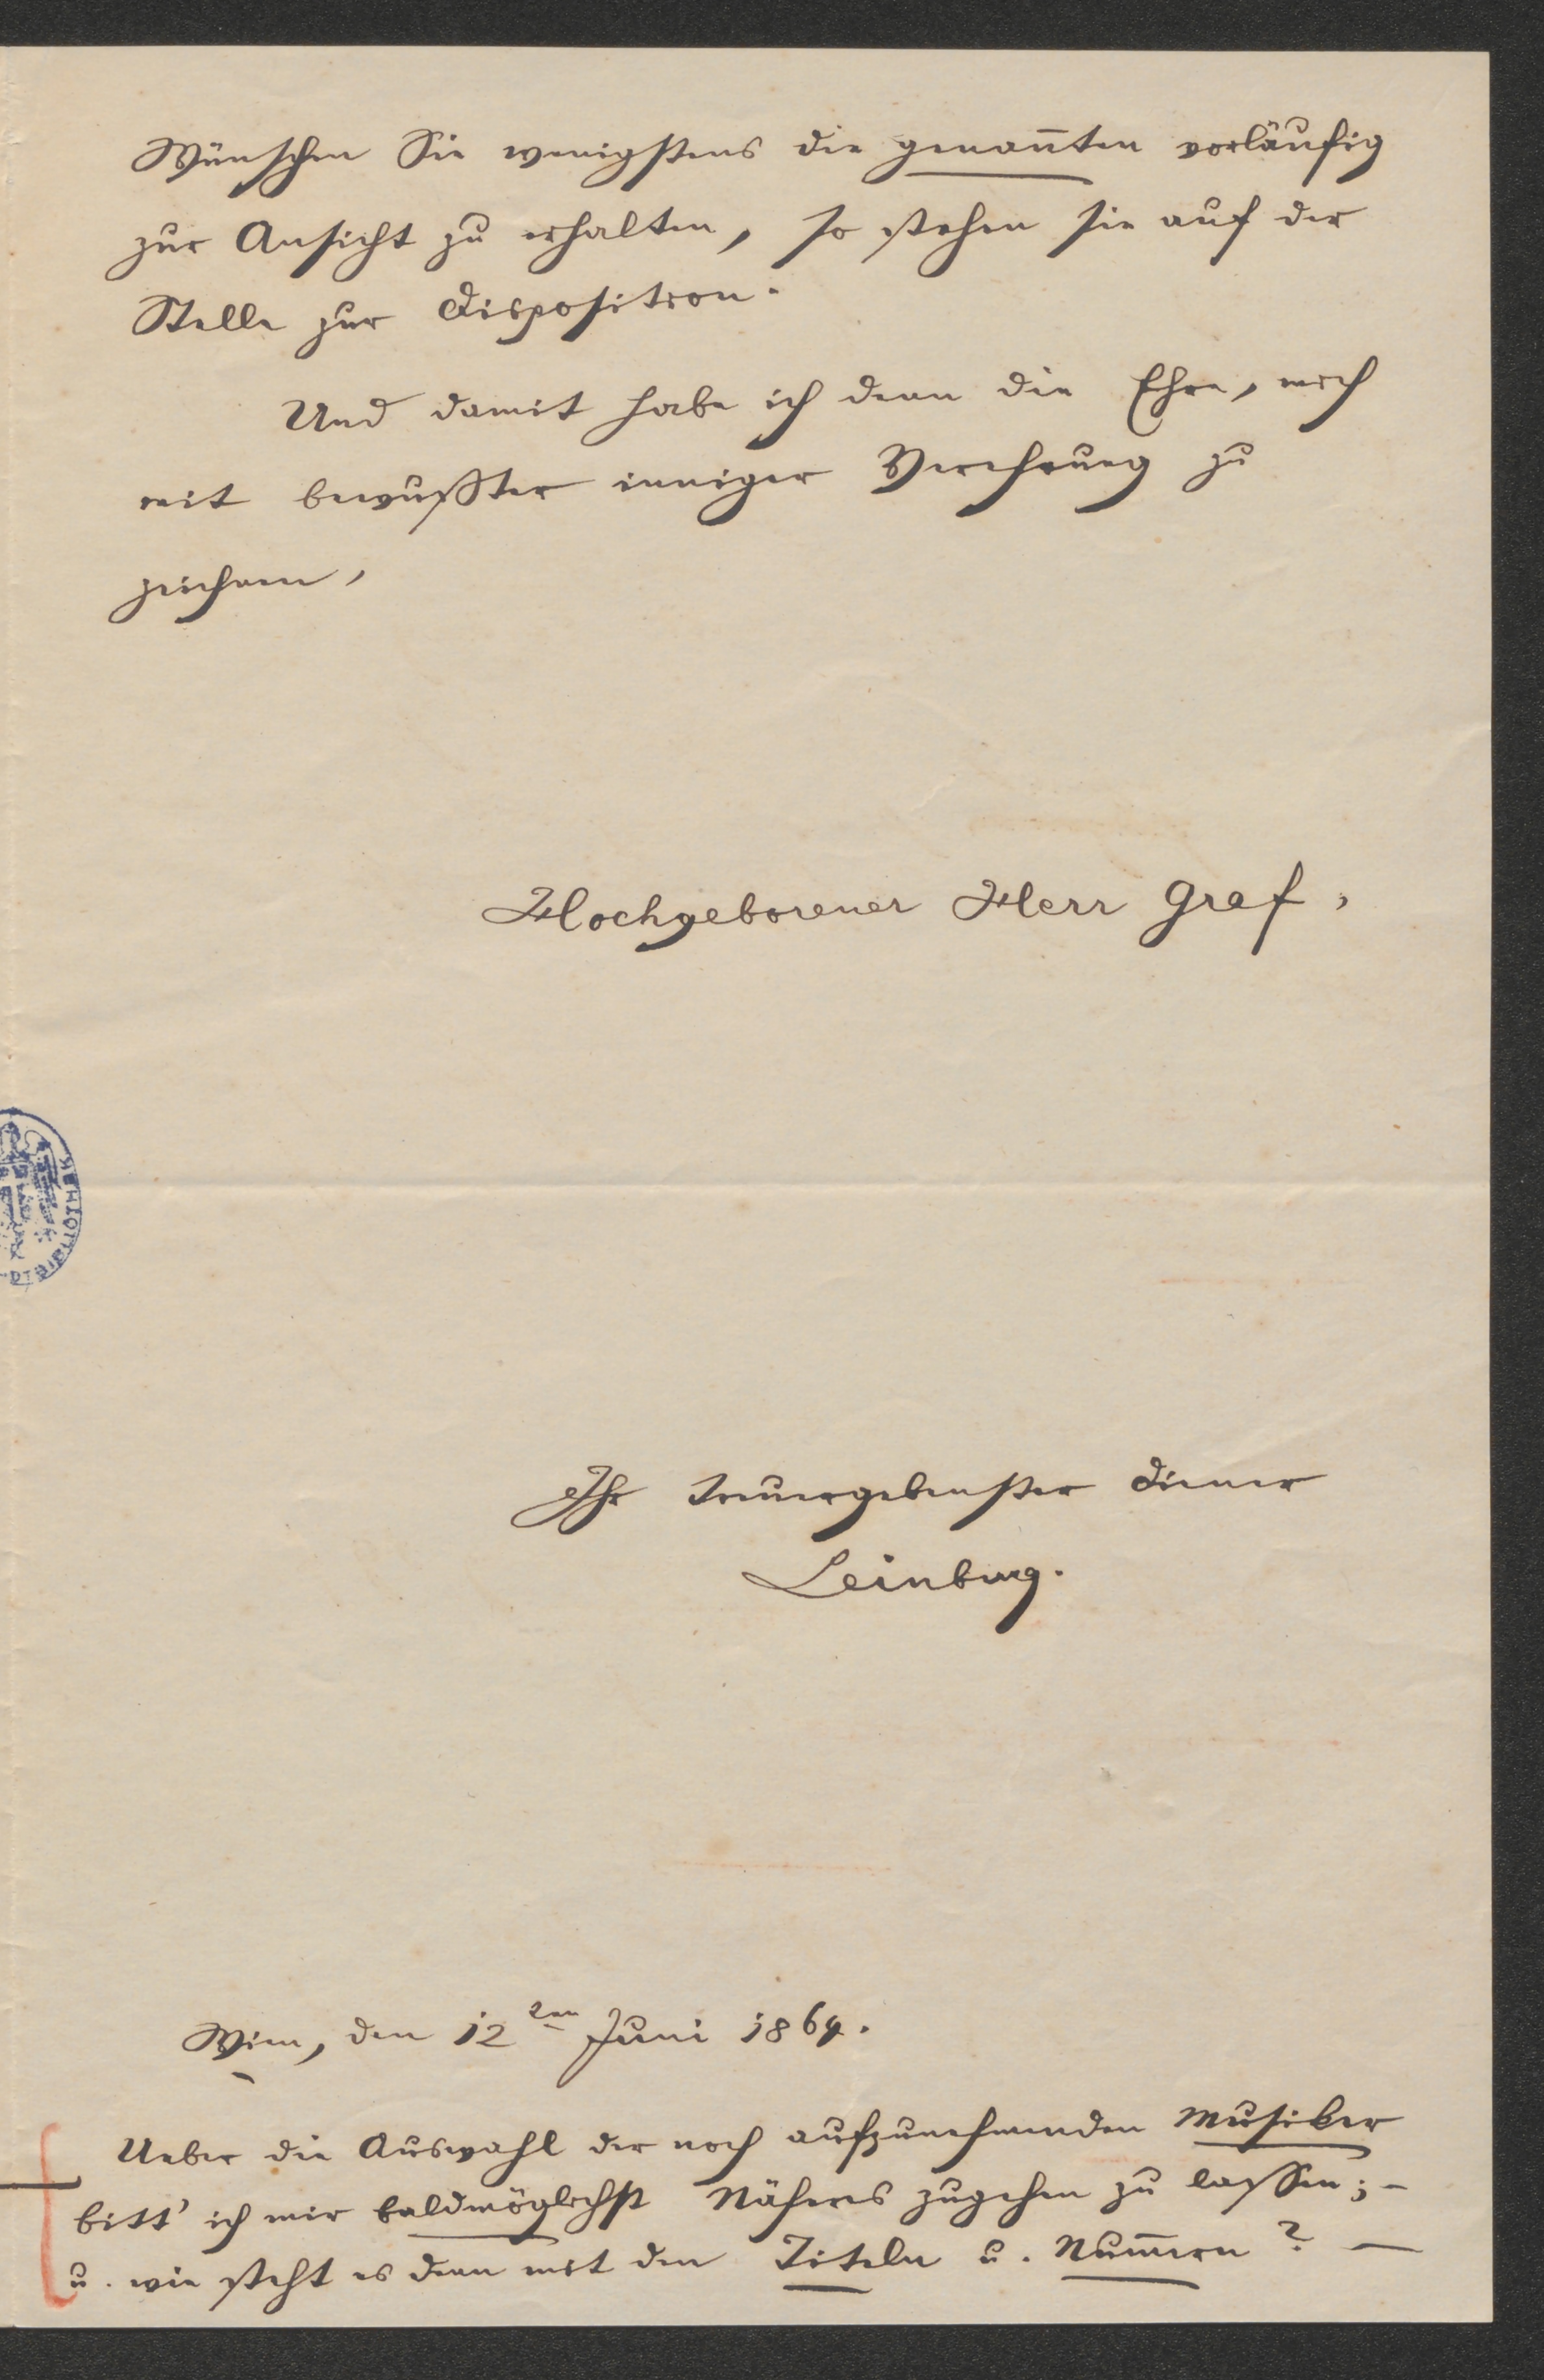 Wünschen Sie wenigstens die genan̄ten vorläufig
zur Ansicht zu erhalten, so stehen sie auf der
Stelle zur Disposition.
Und damit habe ich denn die Ehre, mich
mit bewußter inniger Verehrung zu
zeichnen,
Hochgeborener Herr Graf,
Ihr treuergebenster Diener
Leinburg.
Wien, den 12ten Juni 1864.
Ueber die Auswahl der noch aufzunehmenden Musiker
bitt' ich mir baldmöglichst Näheres zugehen zu lassen; –
u. wie steht es denn mit den Titeln u. Num̄ern? —
BIBLIOTHEK